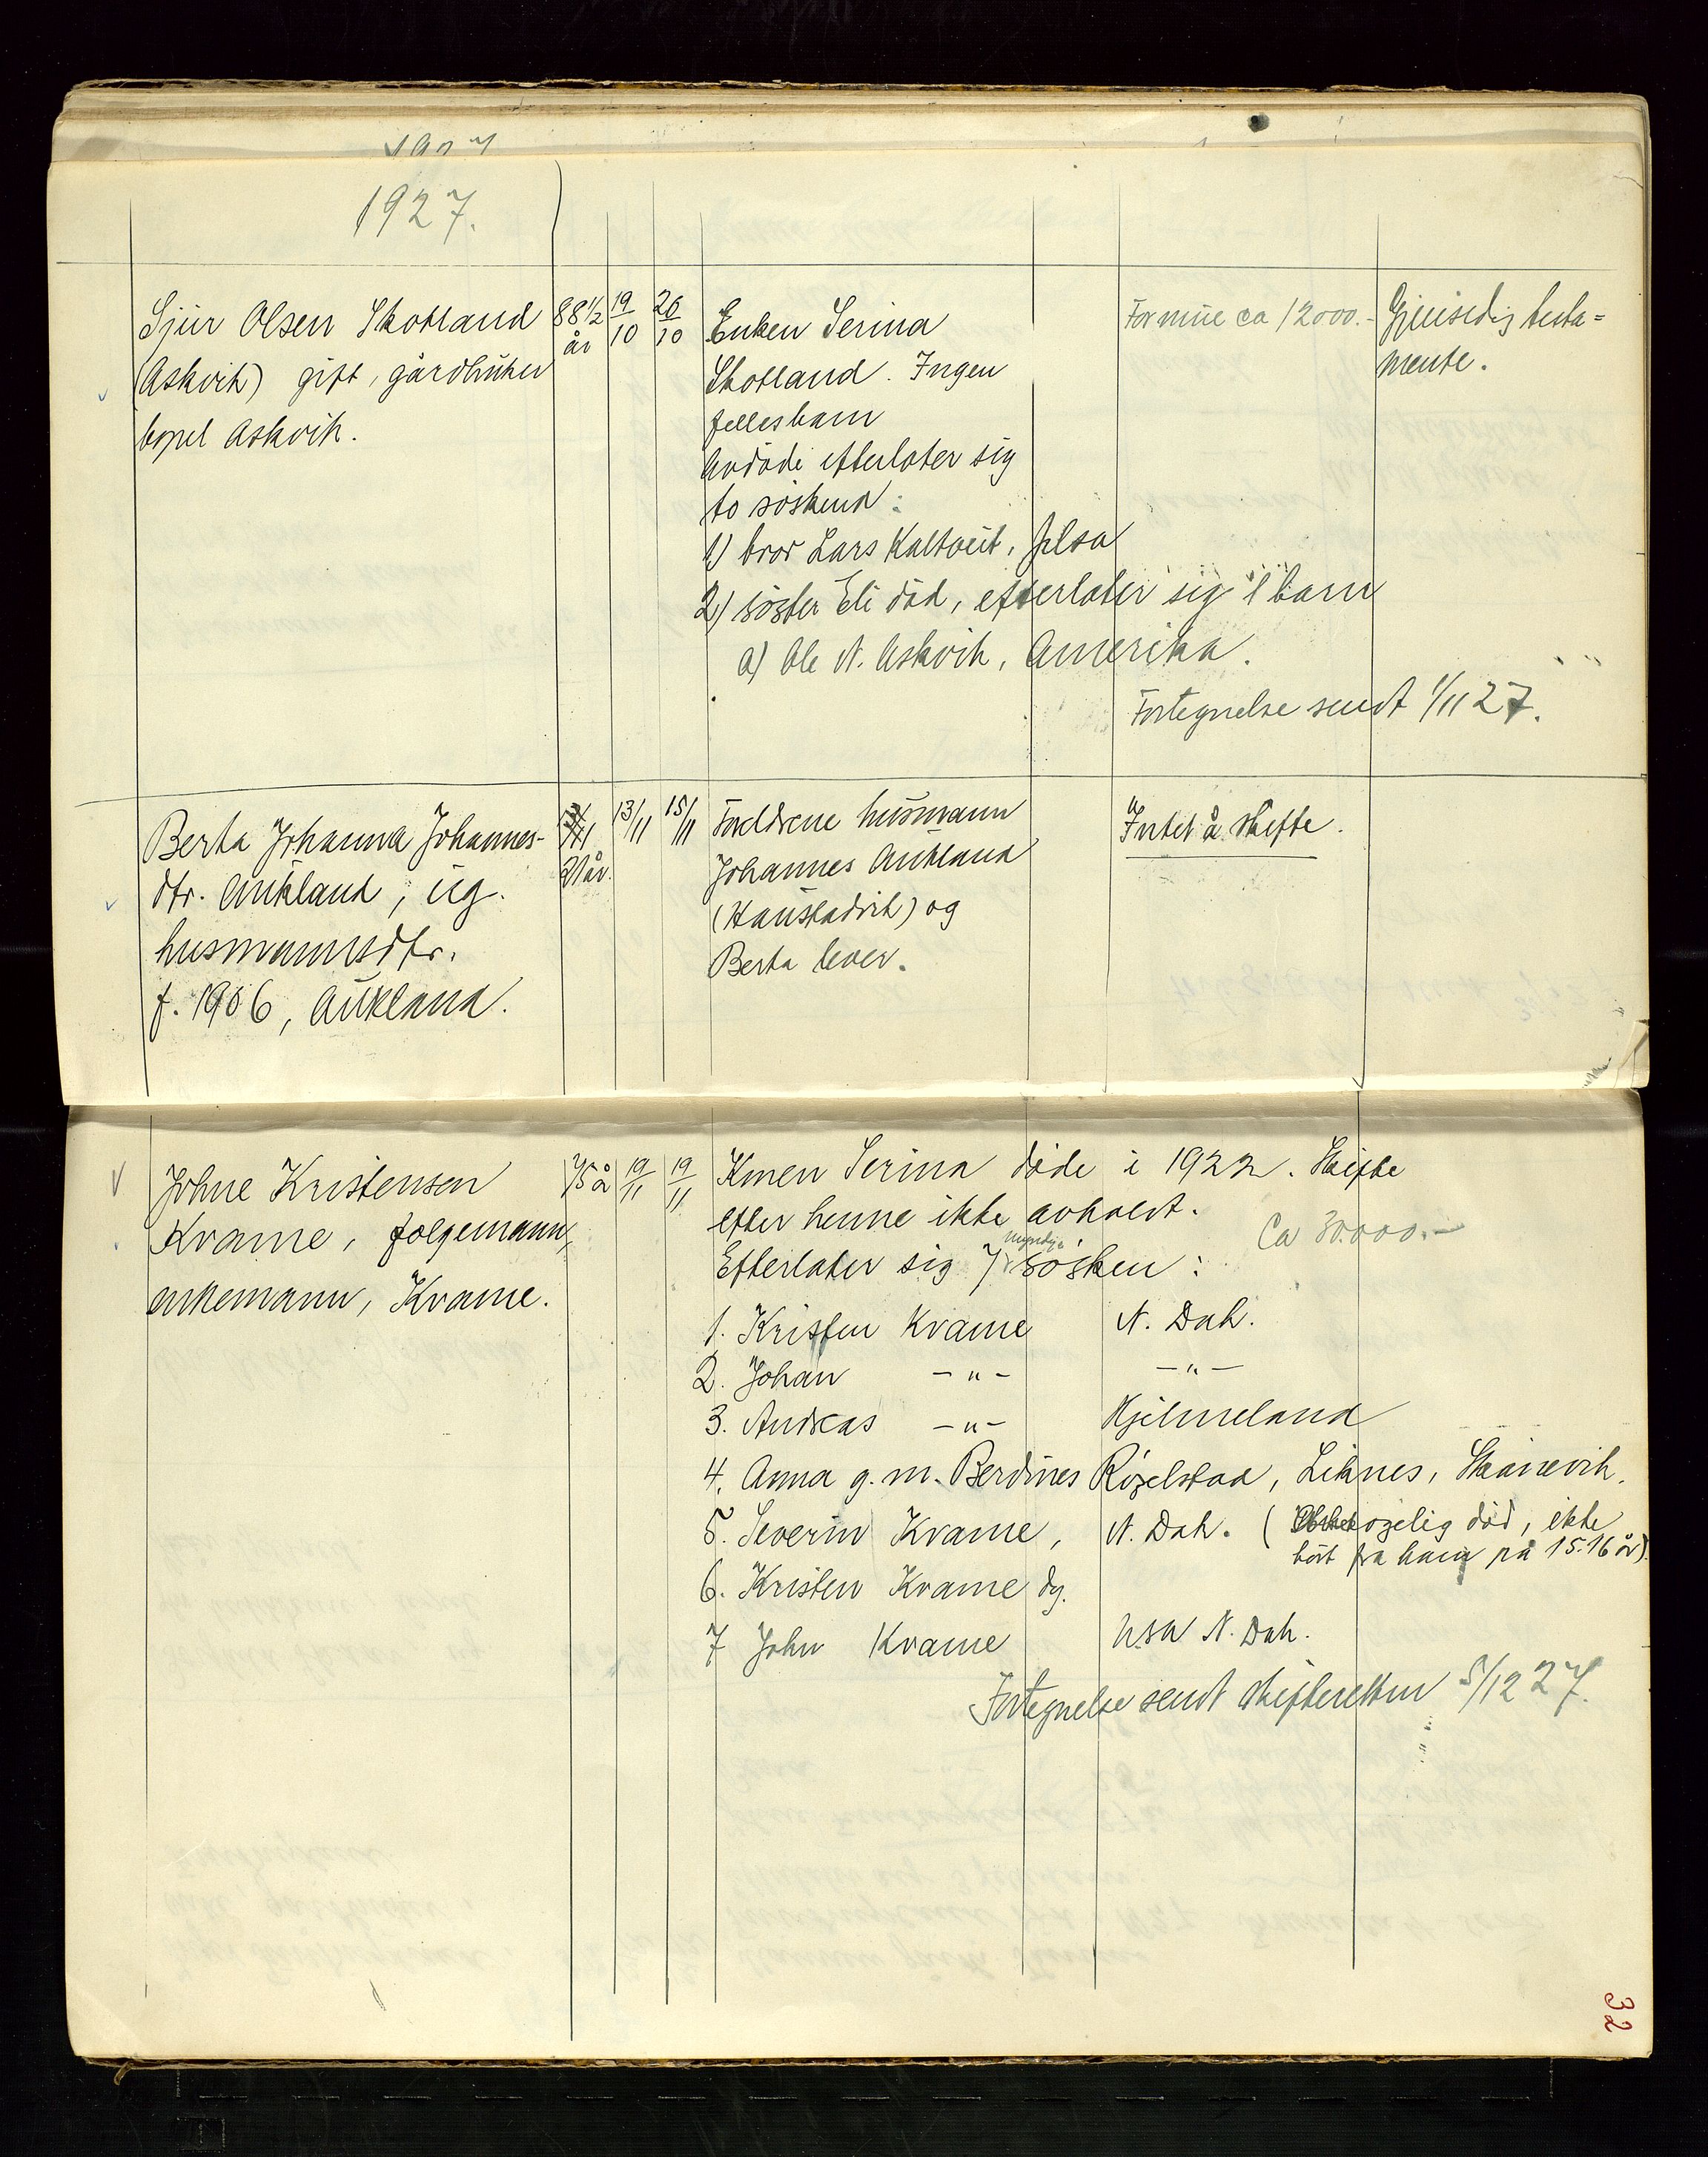 1927.
Sjur Olsen Skotland
(Askvik) gift, gårdbruker
bopel Askvik.
88 1/2
år
19/10
26/10
Enken Serina
Skotland. Ingen
fellesbarn
Avdöde efterlater sig
to söskend:
1) bror Lars Kaltveit, Jelsa
2) söster Eli död, efterlater sig 1 barn
a) Ole N. Askvik, Amerika.
Formue ca 12000.-
Gjensidig testa=
mente.
Fortegnelse sendt 1/11 27.
Berta Johanna Johannes-
dtr. Aukland, ug.
husmannsdtr.
f. 1906, Aukland.
21 år.
13/11
15/11
Foreldrene husmann
Johannes Aukland
(Haustadvik) og
Berta lever.
Intet å skifte.
Johne Kristensen
Kvame, folgemann,
enkemann, Kvame.
75 å
19/11
19/11
Konen Serina döde i 1922. Skifte
efter henne ikke avholdt.
Ca 30.000.-
Efterlater sig 7 myndige sösken:
1. Kristen Kvame N. Dak.
2. Johan -"- -"-
3. Andreas -"- Hjelmeland
4. Anna g.m. Berdines Röželstad, Liknes, Skånevik.
5. Severin Kvame, N. Dak. ( död, ikke
hört fra ham på 15-16 år).
6. Kristen Kvame dy.
7 John Kvame USA N. Dak.
Fortegnelse sendt skifteretten 5/12 27.
32